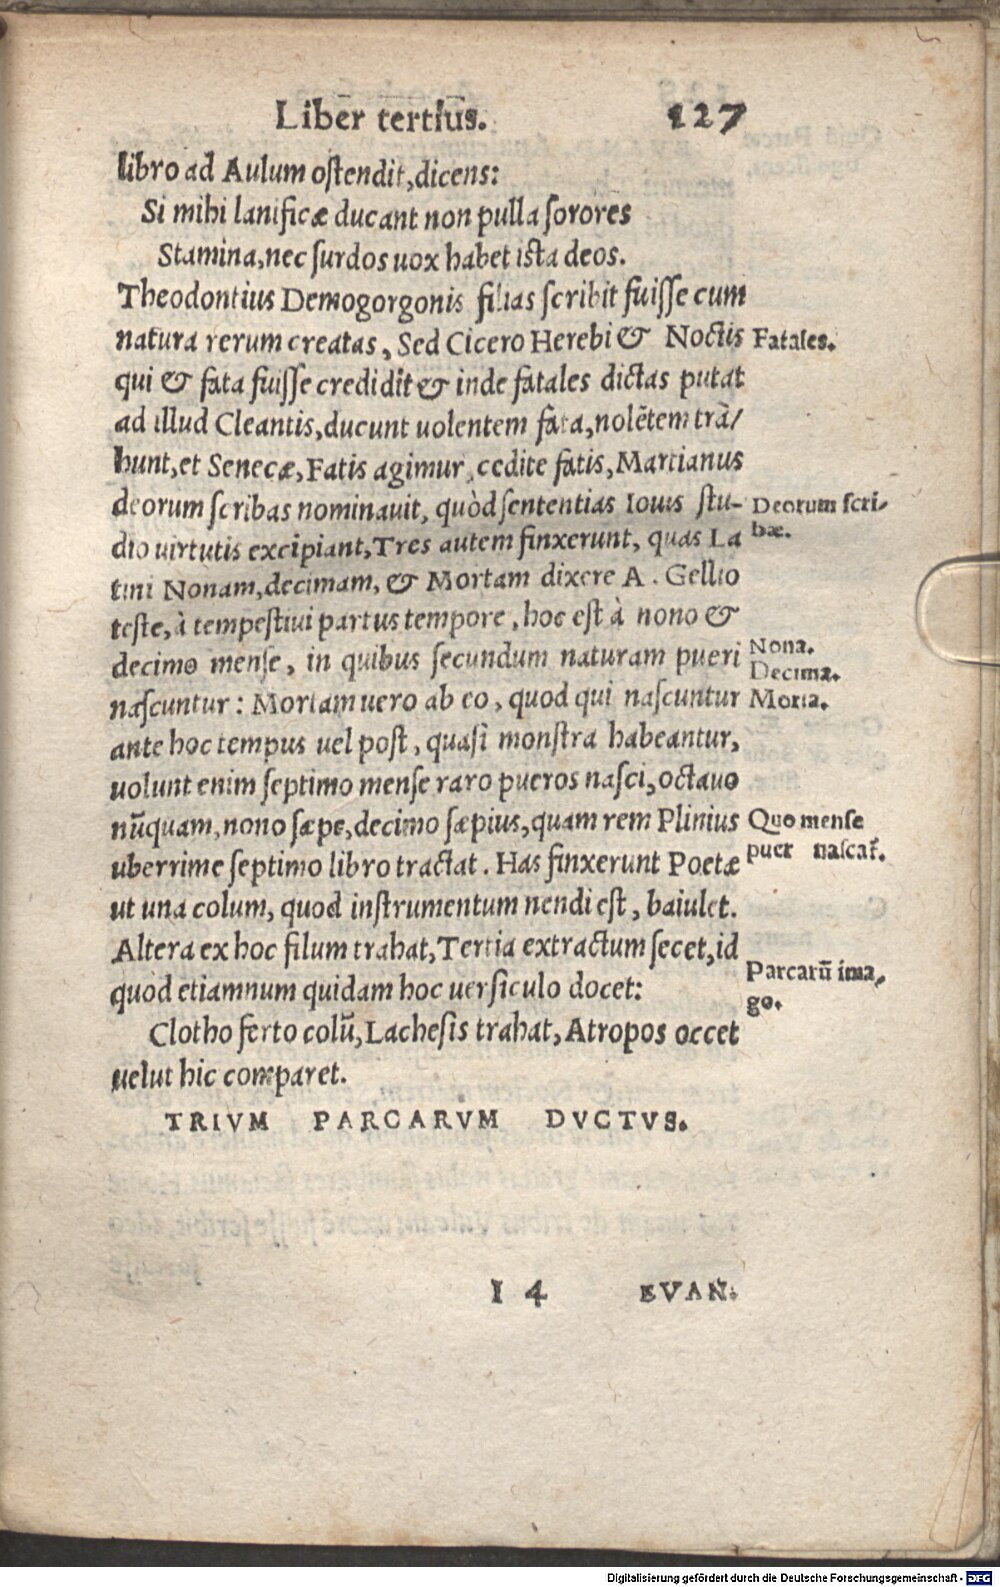 Liber tertius. 127
libro ad Aulum ostendit, dicens:
Si mihi lanificæ ducant non pulla sorores
Stamina, nec surdos uox habet ista deos.
Theodontius Demogorgonis filias scribit fuisse cum
natura rerum creatas, Sed Cicero Herebi & Noctis
Fatales.
qui & fata fuisse credidit & inde fatales dictas putat
ad illud Cleantis, ducunt uolentem fata, nolētem trā/
hunt, et Senecæ, Fatis agimur, cedite fatis, Martianus
deorum scribas nominauit, quòd sententias Iouis stu-
Deorum scri-
bæ.
dio uirtutis excipiant, Tres autem finxerunt, quas La
tini Nonam, decimam, & Mortam dixere A. Gellio
teste, à tempestiui partus tempore, hoc est à nono &
decimo mense, in quibus secundum naturam pueri
Nona.
Decima.
nascuntur: Mortam uero ab eo, quod qui nascuntur
Morta.
ante hoc tempus uel post, quasi monstra habeantur,
uolunt enim septimo mense raro pueros nasci, octauo
nūquam, nono sæpe, decimo sæpius, quam rem Plinius
Quo mense
puer nascat̄.
uberrime septimo libro tractat. Has finxerunt Poetæ
ut una colum, quod instrumentum nendi est, baiulet.
Altera ex hoc filum trahat, Tertia extractum secet, id
Parcarū ima-
go.
quod etiamnum quidam hoc uersiculo docet:
Clotho ferto colū, Lachesis trahat, Atropos occet
uelut hic comparet.
TRIVM PARCARVM DVCTVS.
I 4 EVAN.
Digitalisierung gefördert durch die Deutsche Forschungsgemeinschaft - DFG